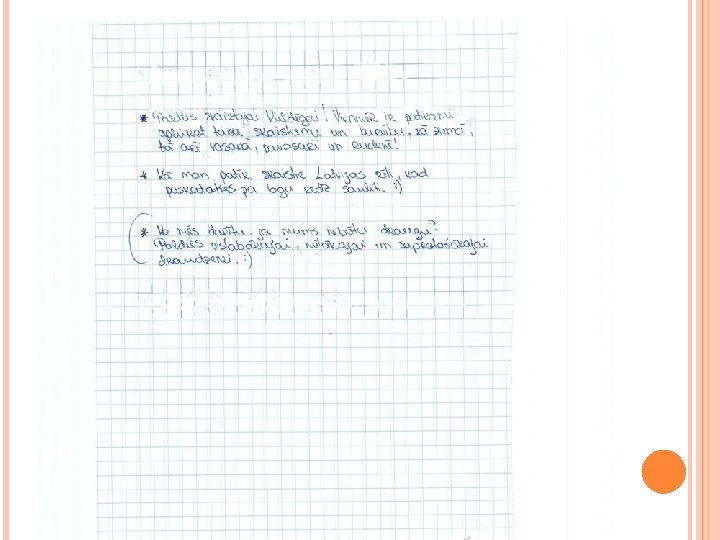 * Paldies skaistajai Valdogai! Vienmēr ir patiesi
aplūkot tavu skaistumu un burvību, kā ziemā,
tā arī vasarā, pavasarī un rudenī!
* Kā man patīk skaistie Latvijas rīti, kad
paskatoties pa logu redz saulīti. :)
* Ko mēs darītu, ja mums nebūtu draugu?
Paldies vislabākajai, mīļākajai un superforšākajai
draudzenei. :)